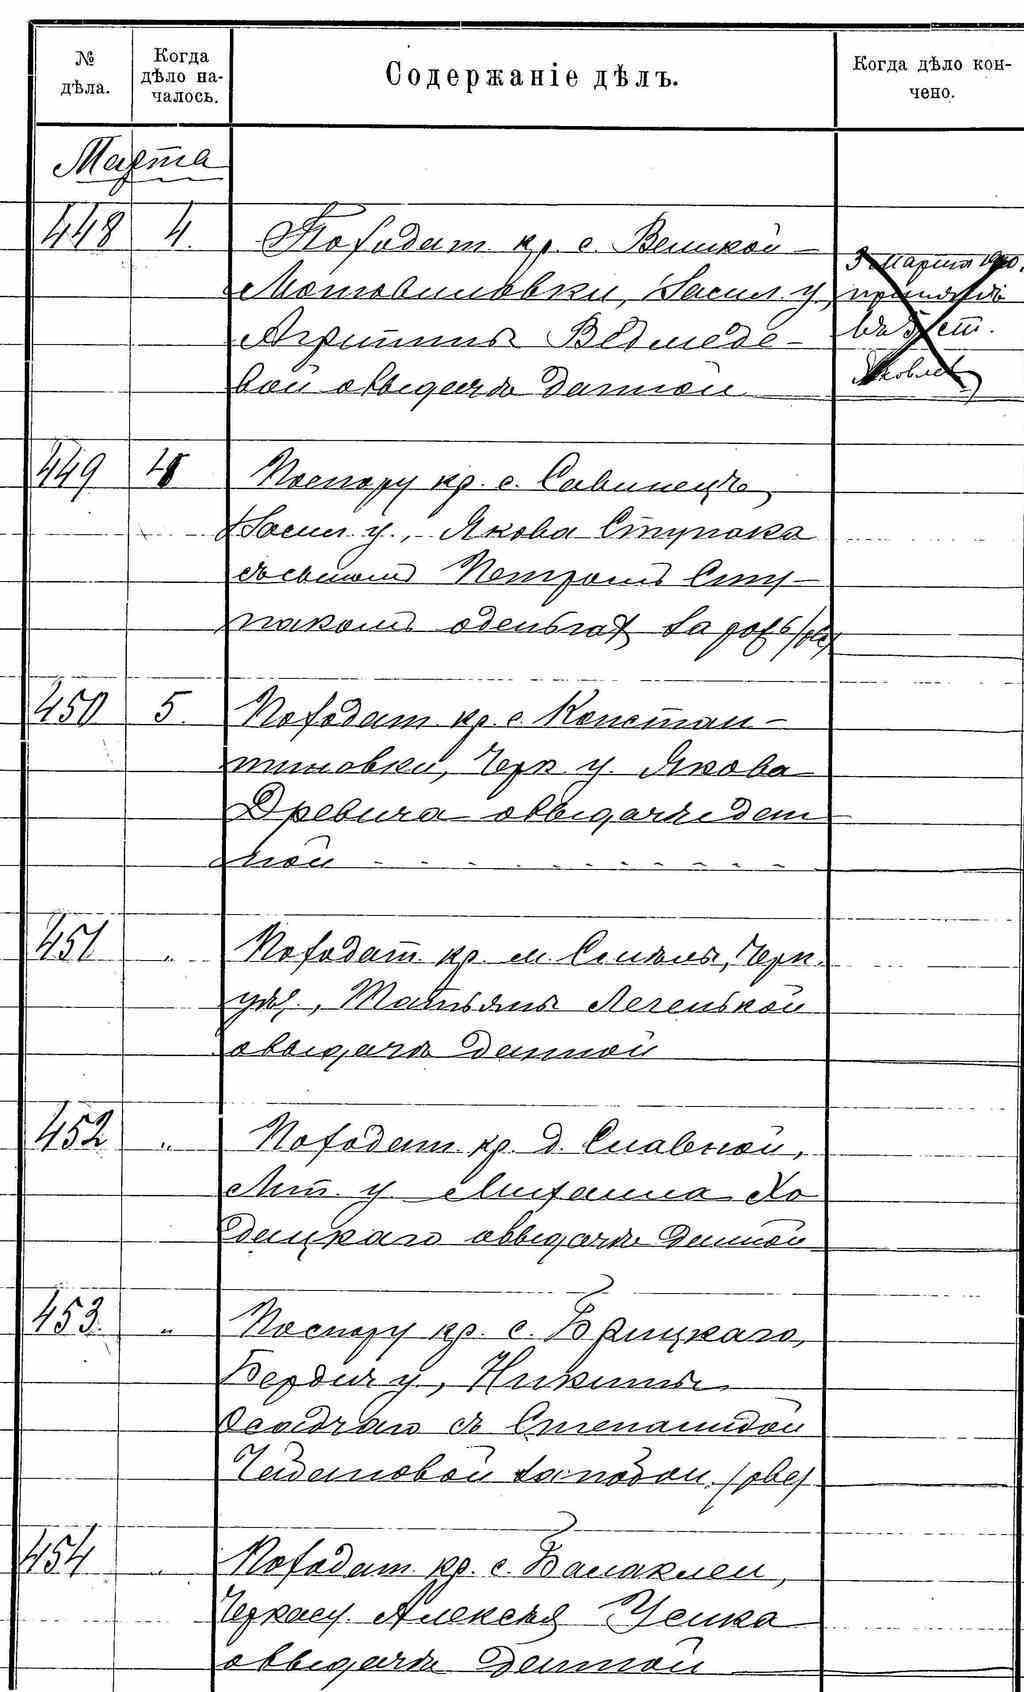 № дѣла.
Когда дѣло на-
чалось.
Содержаніе дѣлъ.
Когда дѣло кон-
чено.
Марта
448 4. По ходат. кр. с. Великой-
Мотовиловки, Васил. у.,
Агрипины Ведмеде-
вой о выдачѣ данной
3 Марта
въ 5 ст.
Яковлев
449 По спору кр. с. Савинецъ,
Васил. у., Якова Ступака
съ сыномъ Петромъ Сту-
пакомъ о деньгах за
450 5. По ходат. кр. с. Констан-
тиновки, Черк. у. Якова
Древича о выдачѣ дан-
ной
451 „ По ходат. кр. м. Смѣлы, Черк.
уѣз., Татьяны Легенькой
о выдачѣ данной
452 „ По ходат. кр. д. Славной,
Лип. у. Михаила Хо
децкаго о выдачѣ данной
453 „ По спору кр. с. Брицкаго,
Бердич у., Никиты
Осадчаго съ Степанидой
Чабановой за побои.
454 „ По ходат. кр. с. Балаклеи,
Черкас у. Алексѣя Усика
о выдачѣ данной